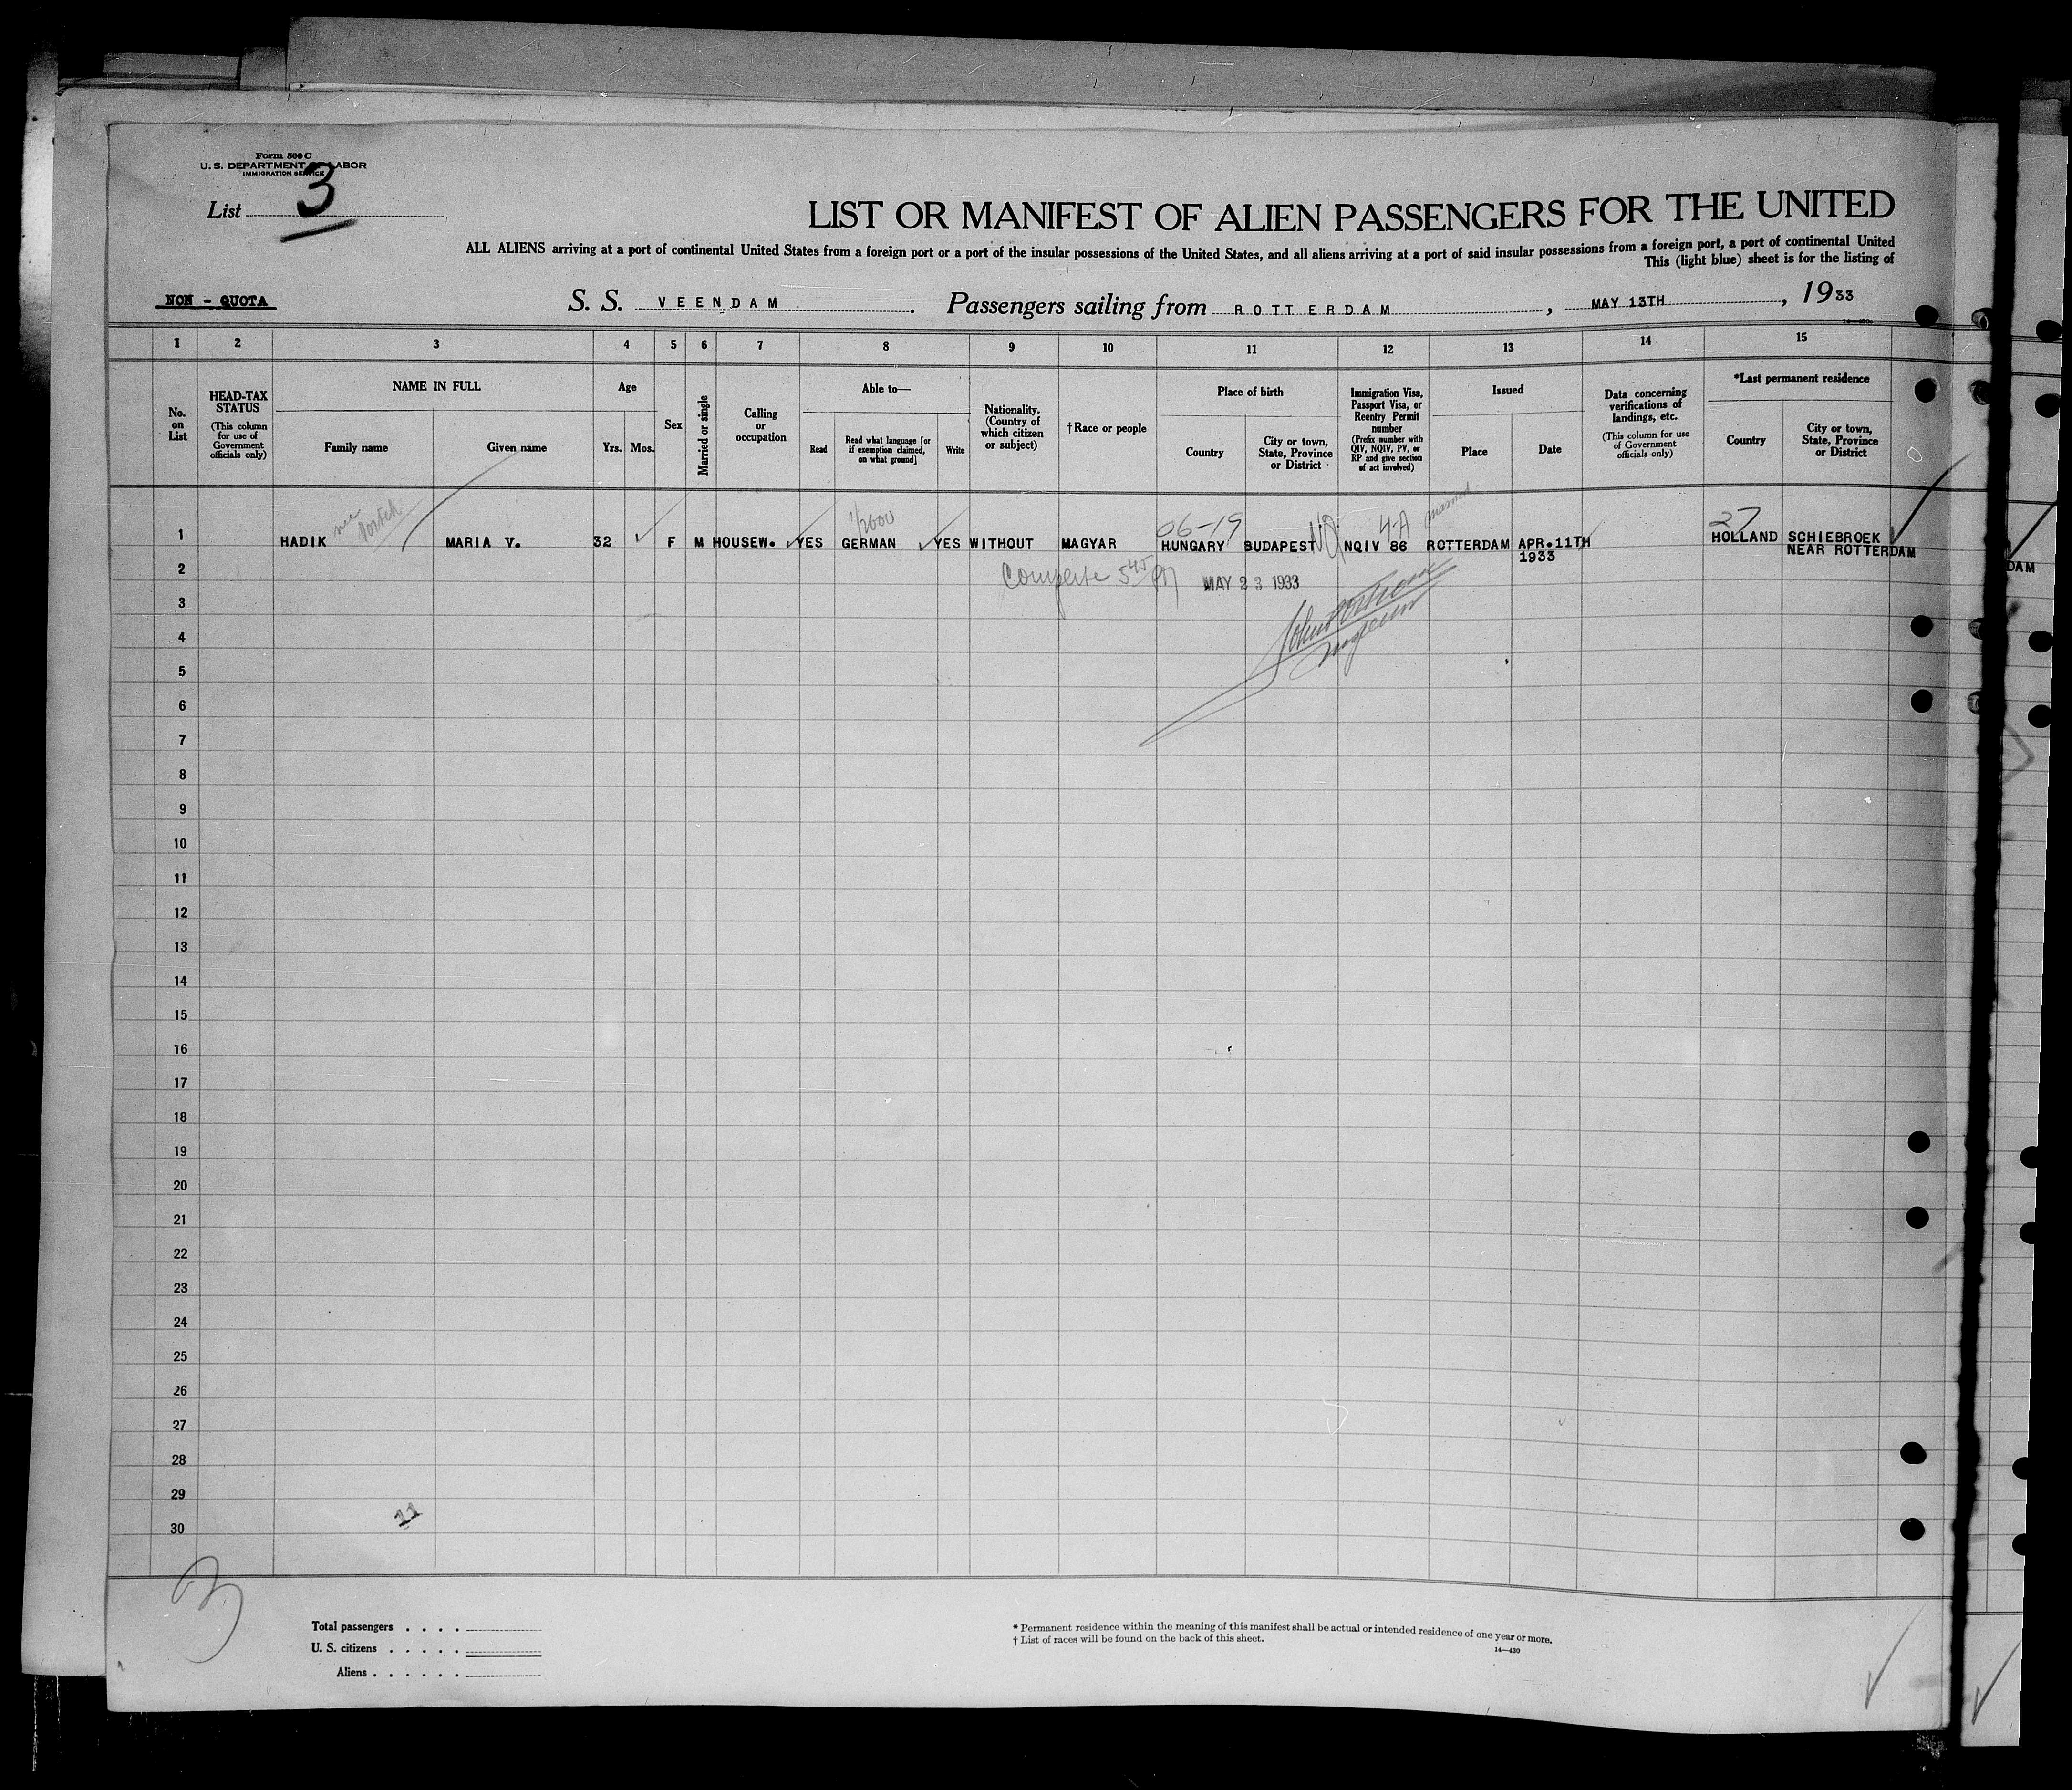 Form 500 C
U. S. DEPARTMENT OF LABOR
IMMIGRATION SERVICE
List 3
LIST OR MANIFEST OF ALIEN PASSENGERS FOR THE UNITED
ALL ALIENS arriving at a port of continental United States from a foreign port or a port of the insular possessions of the United States, and all aliens arriving at a port of said insular possessions from a foreign port, a port of continental United
This (light blue) sheet is for the listing of
NON - QUOTA
S. S. VEENDAM. Passengers sailing from ROTTERDAM, MAY 13TH, 1933
1 2 3 4 5 6 7 8 9 10 11 12 13 14 15
No. on List
HEAD-TAX STATUS
(This column for use of Government officials only)
NAME IN FULL
Family name
Given name
Age
Yrs.
Mos.
Sex
Married or single
Calling or occupation
Able to—
Read
Read what language [or if exemption claimed, on what ground]
Write
Nationality. (Country of which citizen or subject)
†Race or people
Place of birth
Country
City or town, State, Province or District
Immigration Visa, Passport Visa, or Reentry Permit number
(Prefix number with QIV, NQIV, PV, or RP and give section of act involved)
Issued
Place
Date
Data concerning verifications of landings, etc.
(This column for use of Government officials only)
*Last permanent residence
Country
City or town, State, Province or District
nee
06-19
4-A
married
27
1 HADIK MARIA V. 32 F M HOUSEW. YES GERMAN YES WITHOUT MAGYAR HUNGARY BUDAPEST NQIV 86 ROTTERDAM APR.11TH 1933 HOLLAND SCHIEBROEK NEAR ROTTERDAM
DAM
Complete 5 45 PM MAY 23 1933
2
3
4
5
6
7
8
9
10
11
12
13
14
15
16
17
18
19
20
21
22
23
24
25
26
27
28
29
30
11
3
Total passengers . . . .
U. S. citizens . . . . .
Aliens . . . . . .
* Permanent residence within the meaning of this manifest shall be actual or intended residence of one year or more.
† List of races will be found on the back of this sheet.
14—430